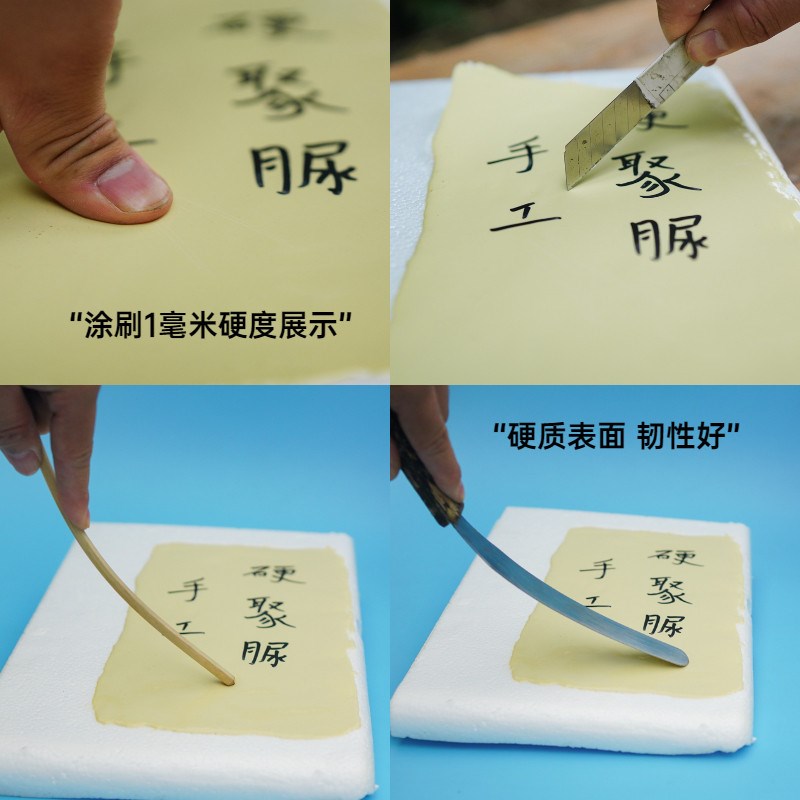 硬聚脲
“涂刷1毫米硬度展示”
硬聚脲
手工
硬聚脲
手工
“硬质表面 韧性好”
硬聚脲
手工